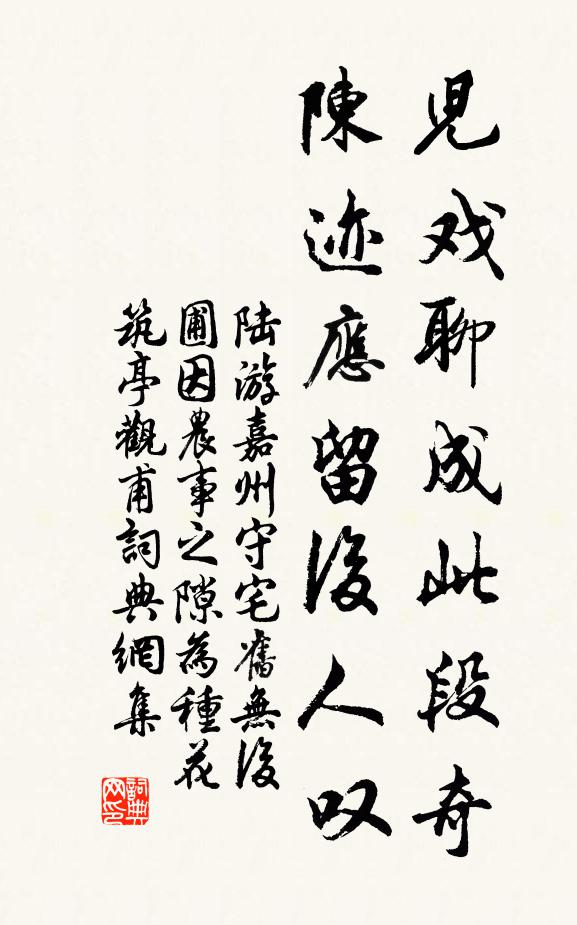 兒戏聊成此段奇
陳迹應留後人叹
陆游嘉州守宅舊無後
圃因農事之隙為種花
筑亭觀甫詞典網集
詞典网印